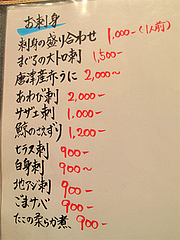 お刺身
刺身の盛り合わせ 1,000-(1人前)
まぐろの大トロ刺 1,500-
唐津産赤うに 2,000~
あわび刺 2,000-
サザエ刺 1,000-
鯨のさえずり 1,200-
ヒラス刺 900-
白身刺 900~
地アジ刺 900-
ごまサバ 900-
たこの柔らか煮 900-